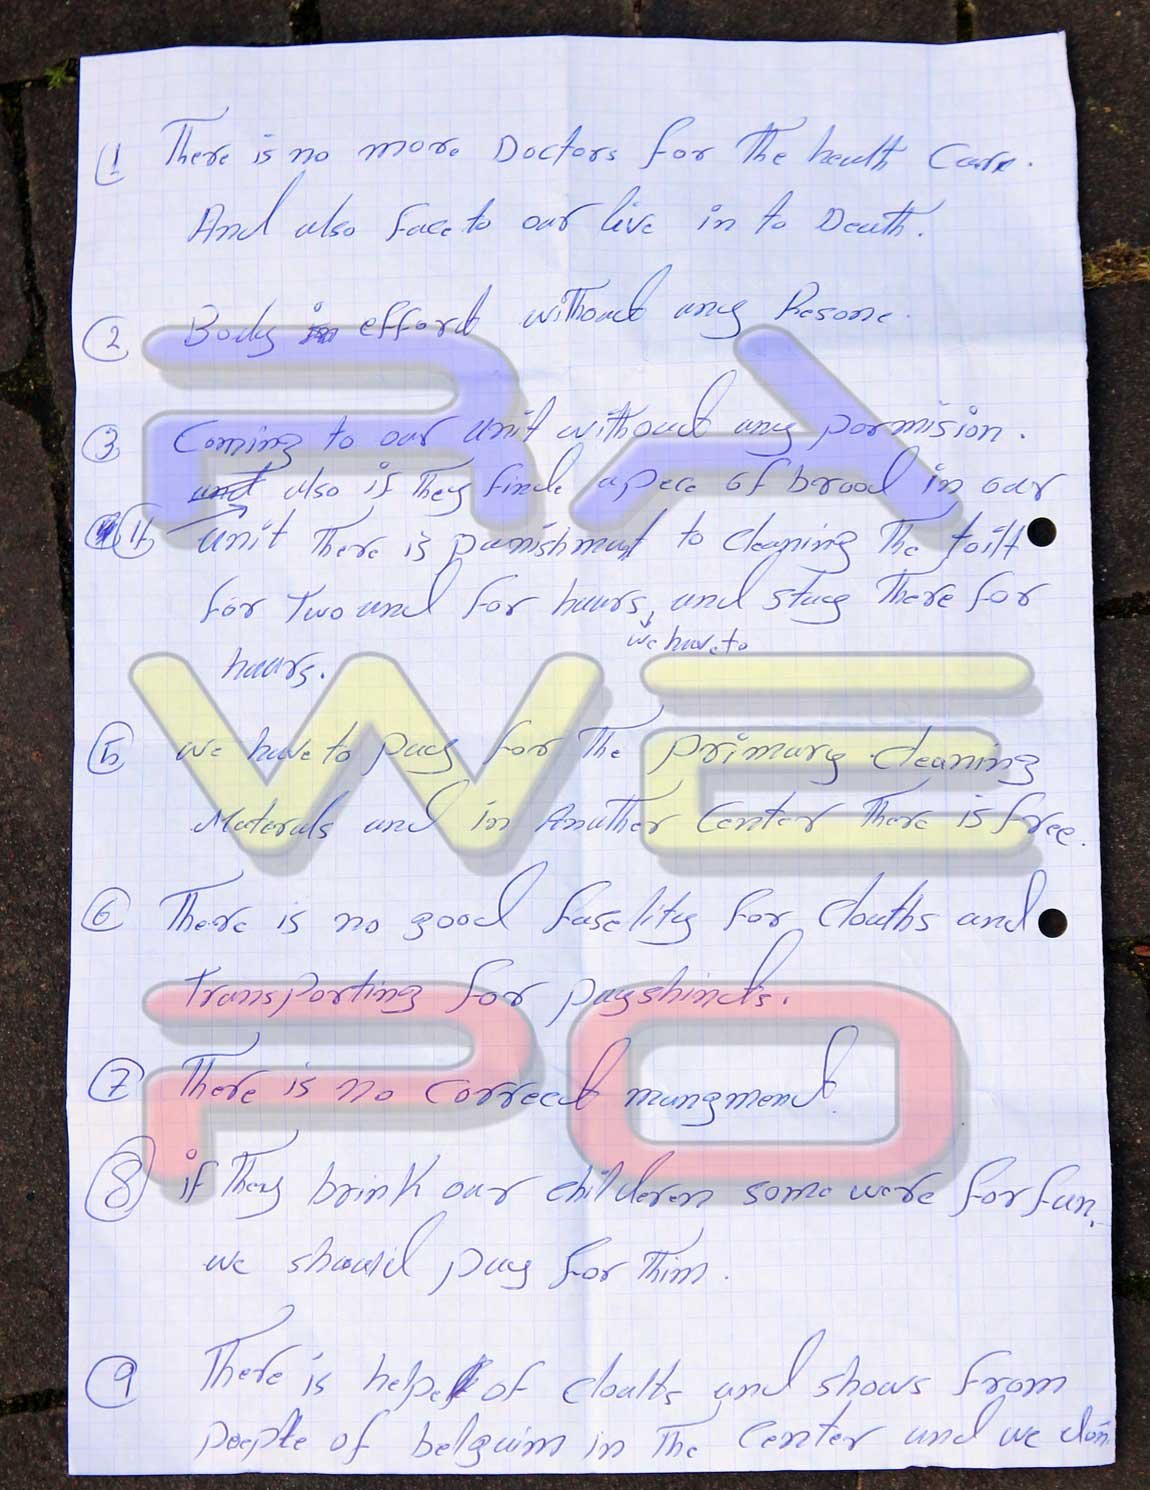 ① There is no more Doctors for The heath Care.
And also face to our live in to Death.
② Body in efford without any Resone.
③ Coming to our unit without any pormision.
and also if They finde apece of broad in our
④ unit There is punishmut to cleaning The toilt
for Two and for hours, and stay There for
we have to
hours.
⑤ we have to pay for The primary cleaning
Materals and in Another Center There is free.
⑥ There is no good faselity for clouths and
transporting for payshinds.
⑦ There is no correct mangment.
⑧ if They brink our children some were for fun,
we should pay for Thim.
⑨ There is helpe of cloaths and shows from
poeple of belgaim in The Center and we don
RA
WE
PO